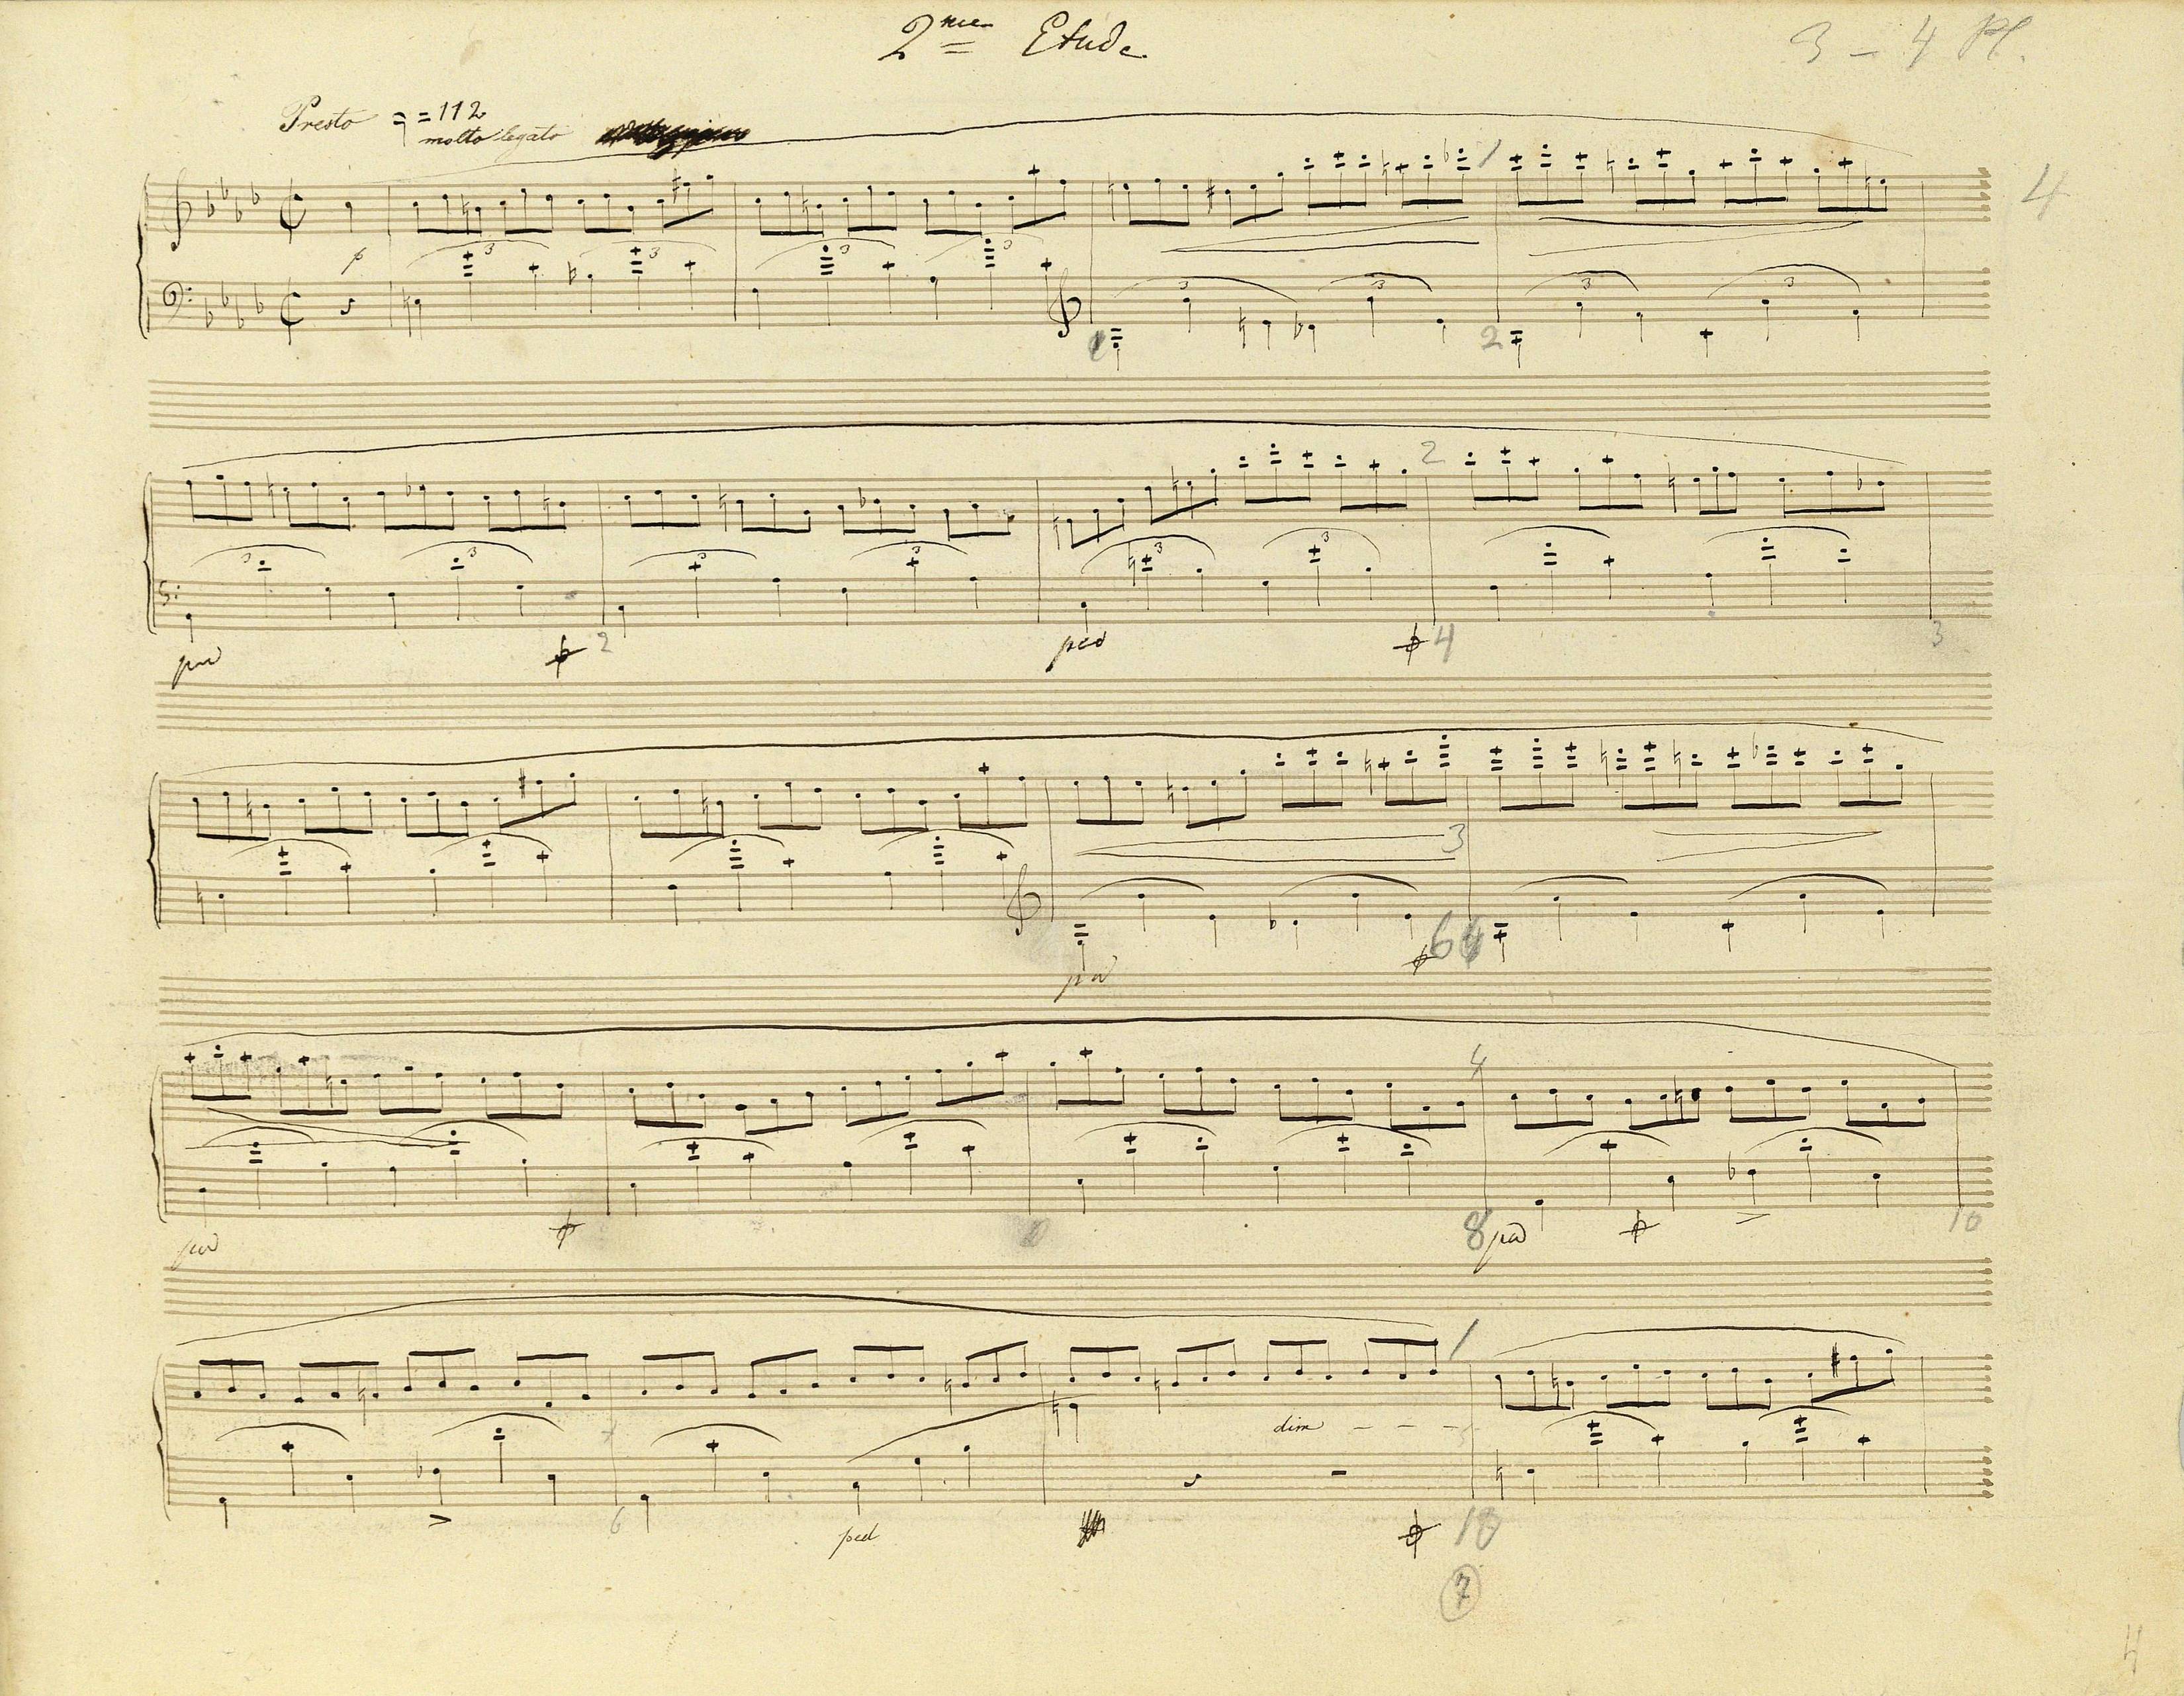 2me Etude
3 - 4 Pl.
Presto = 112
molto legato
4
3 3 3 3
p
3 3 3 3
1
1 2
3 3 3 3
2
3 3
ped 2 ped 4 3
3
ped 6 4
4
ped 8 ped 10
1
dim - - -
6 ped 10
7
4